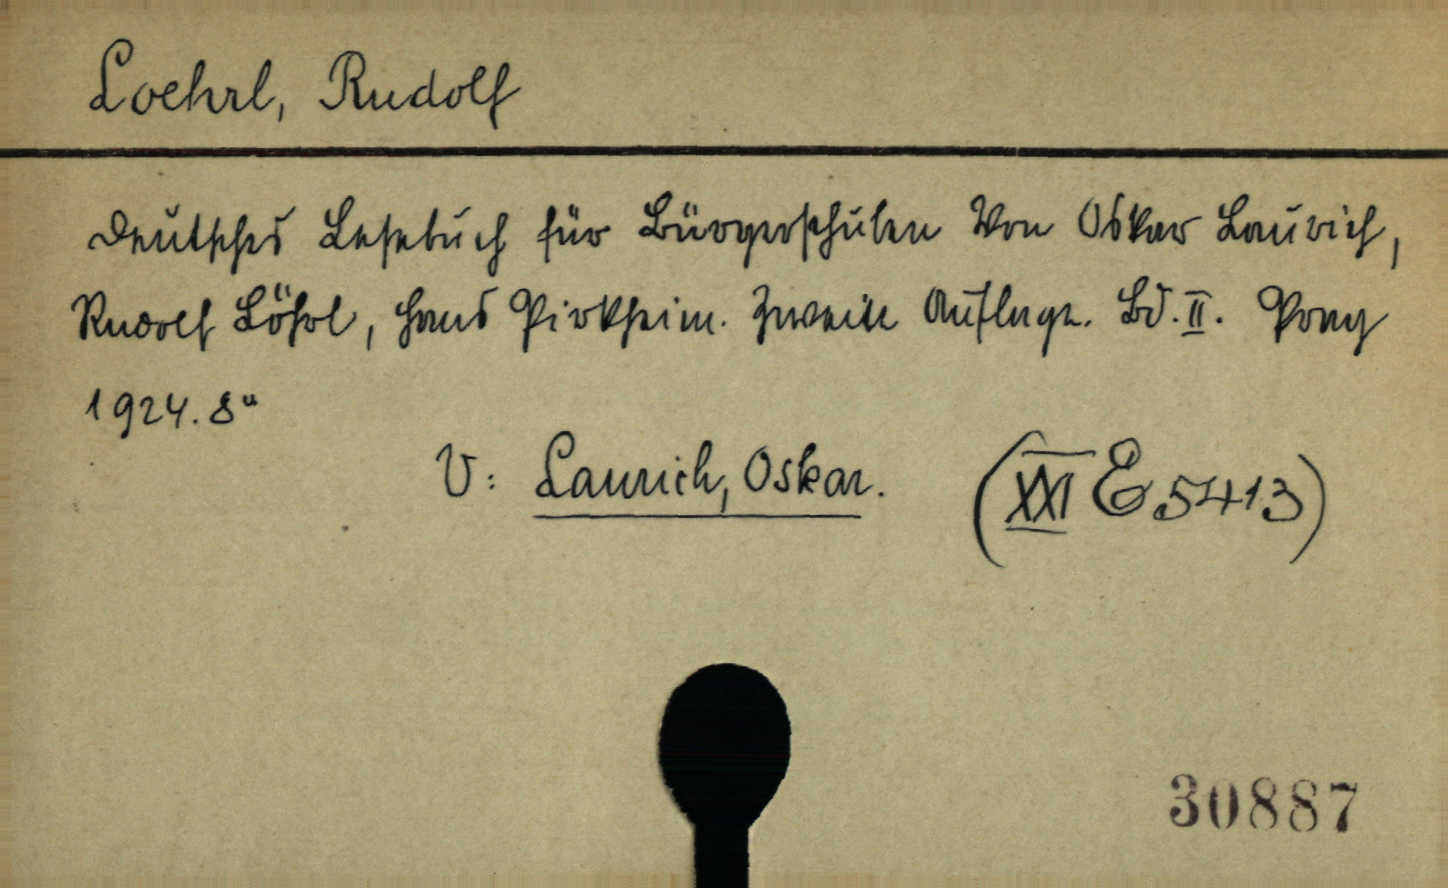 Loehrl, Rudolf
Deutsches Lesebuch für Bürgerschulen Von Oskar Laurich,
Rudolf Löhrl, Hans Pirkheim. Zweite Auflage. Bd. II. Prag
1924. 8°
V: Laurich, Oskar. (XXI E 5413)
30887